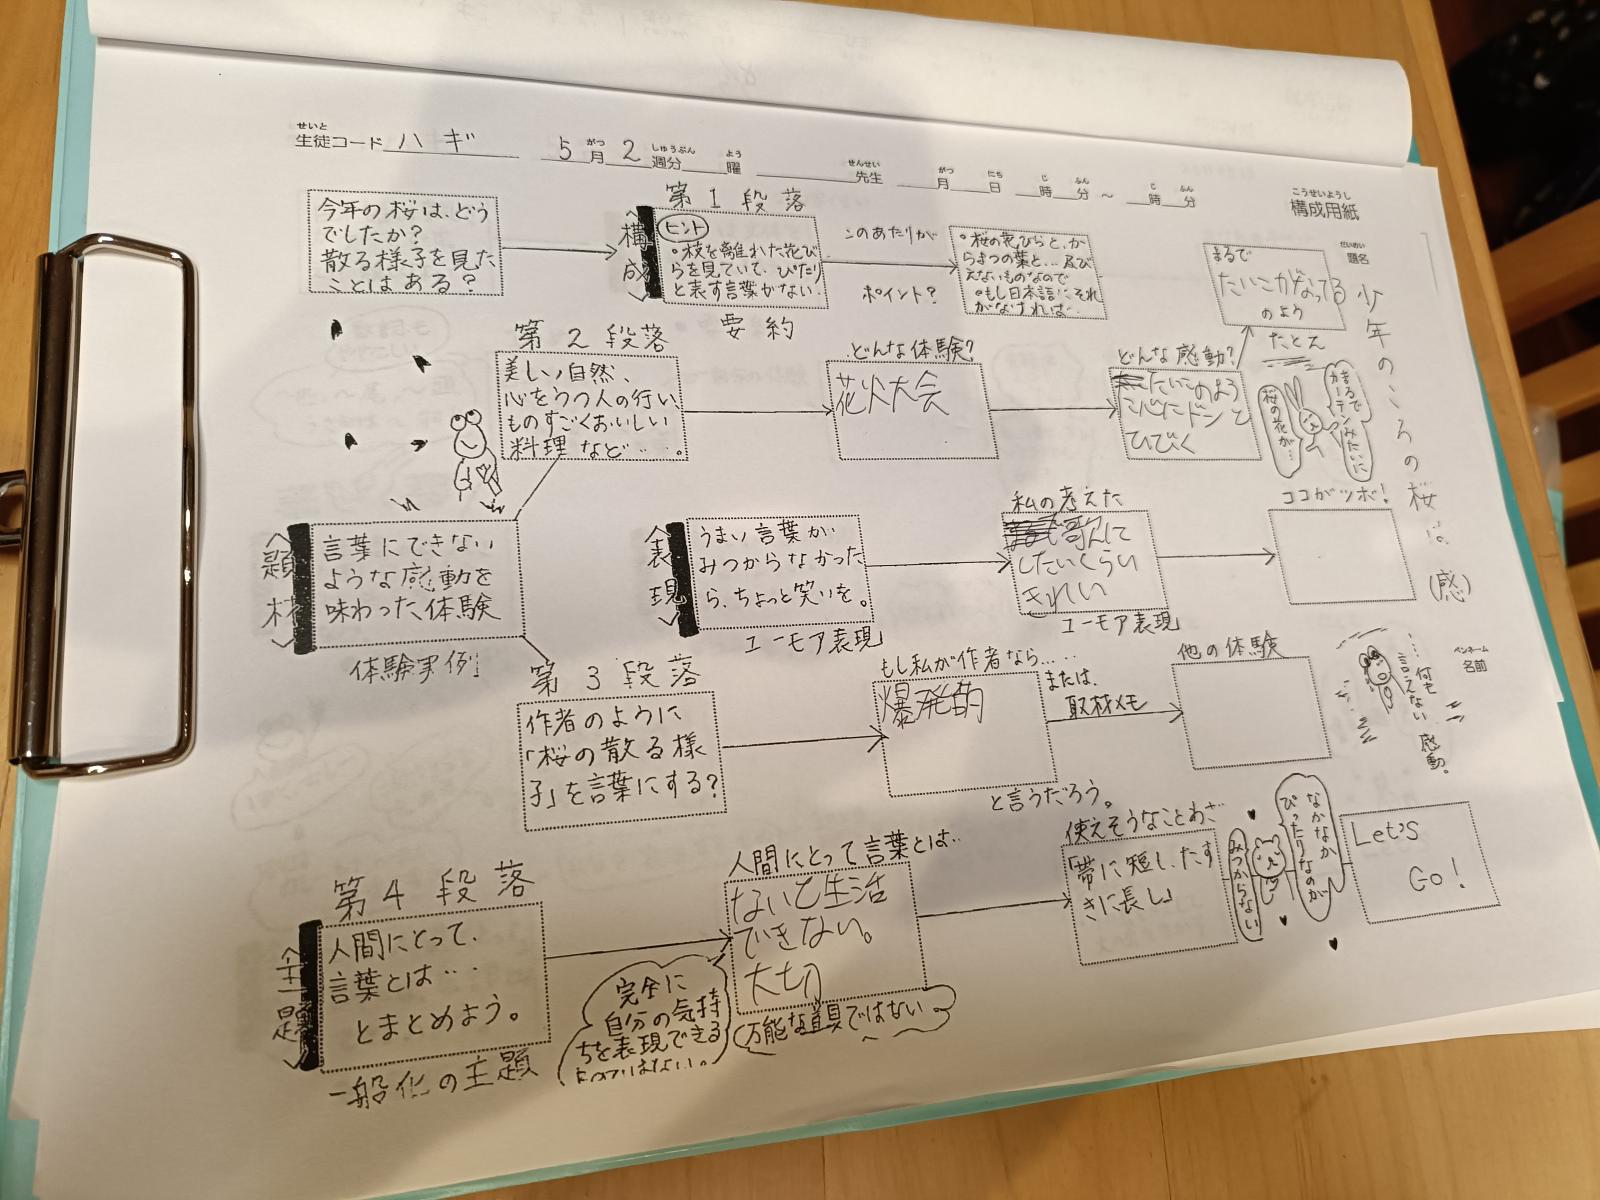 せいと
生徒コード ハギ
がつ しゅうぶん よう
5月2週分 曜
せんせい
先生
がつ にち じ ふん じ ふん
月 日 時 分 ～ 時 分
こうせいようし
構成用紙
だいめい
題名
少年のころの桜は(感)
ペンネーム
名前
今年の桜は、どう
でしたか?
散る様子を見た
ことはある?
<構成>
第1段落
ヒント
•枝を離れた花び
らを見ていて、ぴたり
と表す言葉がない.
要約
このあたりが
ポイント?
•桜の花びらと、か
らまつの葉と…及び
えないものなので
•もし日本語にそれ
がなければ…
まるで
たいこがなってる
のよう
たとえ
第2段落
美しい自然、
心をうつ人の行い、
ものすごくおいしい
料理など……。
どんな体験?
花火大会
どんな感動?
たいこのよう
に心にドンと
ひびく
まるで
カーテンみたいに
桜の花が…
<題材>
言葉にできない
ような感動を
味わった体験
体験実例
<表現>
うまい言葉が
みつからなかった
ら、ちょっと笑いを。
ユーモア表現
私の考えた
歌に
したいくらい
きれい
ユーモア表現
ココがツボ!
第3段落
作者のように
「桜の散る様
子」を言葉にする?
もし私が作者なら……
爆発的
と言うだろう。
または、
取材メモ
他の体験
…何も
言えない感動。
<主題>
第4段落
人間にとって、
言葉とは…
とまとめよう。
一般化の主題
人間にとって言葉とは…
ないと生活
できない。
大切
完全に
自分の気持
ちを表現できる
ものではない。
万能な道具ではない
使えそうなことわざ
「帯に短し、たす
きに長し」
なかなか
ぴったりなのが
みつからない
Let's
Go!